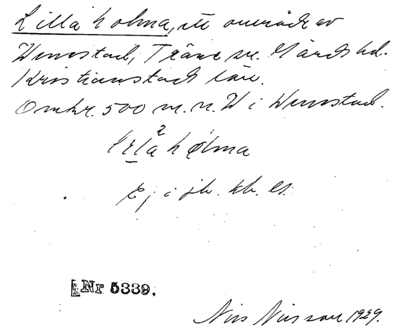 Lilla holma, ett område av
Winnstad, Träne sn. Gärds hd.
Kristianstads län.
Omkr. 500 m. n. W i Winnstad.
lila hølma
Ej i jb. kb. el.
Nr 5339.
Nils Nilsson 1929.